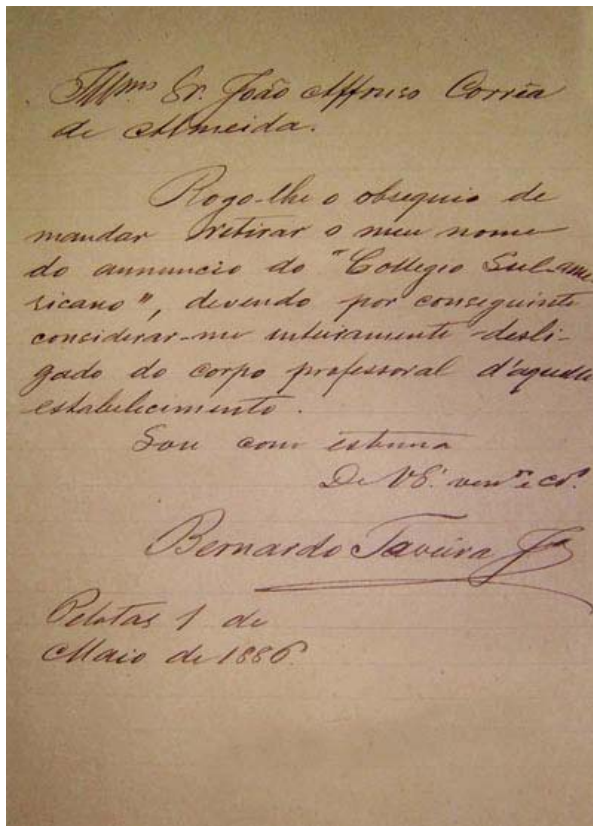 Illmo Sr. João Affonso Corrêa
de Almeida.
Rogo-lhe o obsequio de
mandar retirar o meu nome
do annuncio do "Collegio Sul-ame-
ricano", devendo por conseguinte
considerar-me inteiramente desli-
gado do corpo professoral d'aquelle
estabelecimento.
Sou com estima
De VS.
Bernardo Taveira Jor
Pelotas 1 de
Maio de 1886